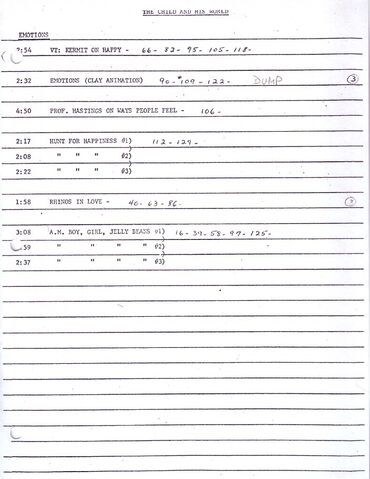 THE CHILD AND HIS WORLD
EMOTIONS
2:54 VT: KERMIT ON HAPPY - 66 - 82 - 95 - 105 - 118 -
2:32 EMOTIONS (CLAY ANIMATION) 90 - 109 - 122 - DUMP 3
4:50 PROF. HASTINGS ON WAYS PEOPLE FEEL - 106 -
2:17 HUNT FOR HAPPINESS #1) 112 - 127 -
2:08 " " " #2)
2:22 " " " #3)
1:58 RHINOS IN LOVE - 40 - 63 - 86 -
3:08 A.M. BOY, GIRL, JELLY BEANS #1) 16 - 39 - 58 - 97 - 125 -
:59 " " " " #2)
2:37 " " " " #3)